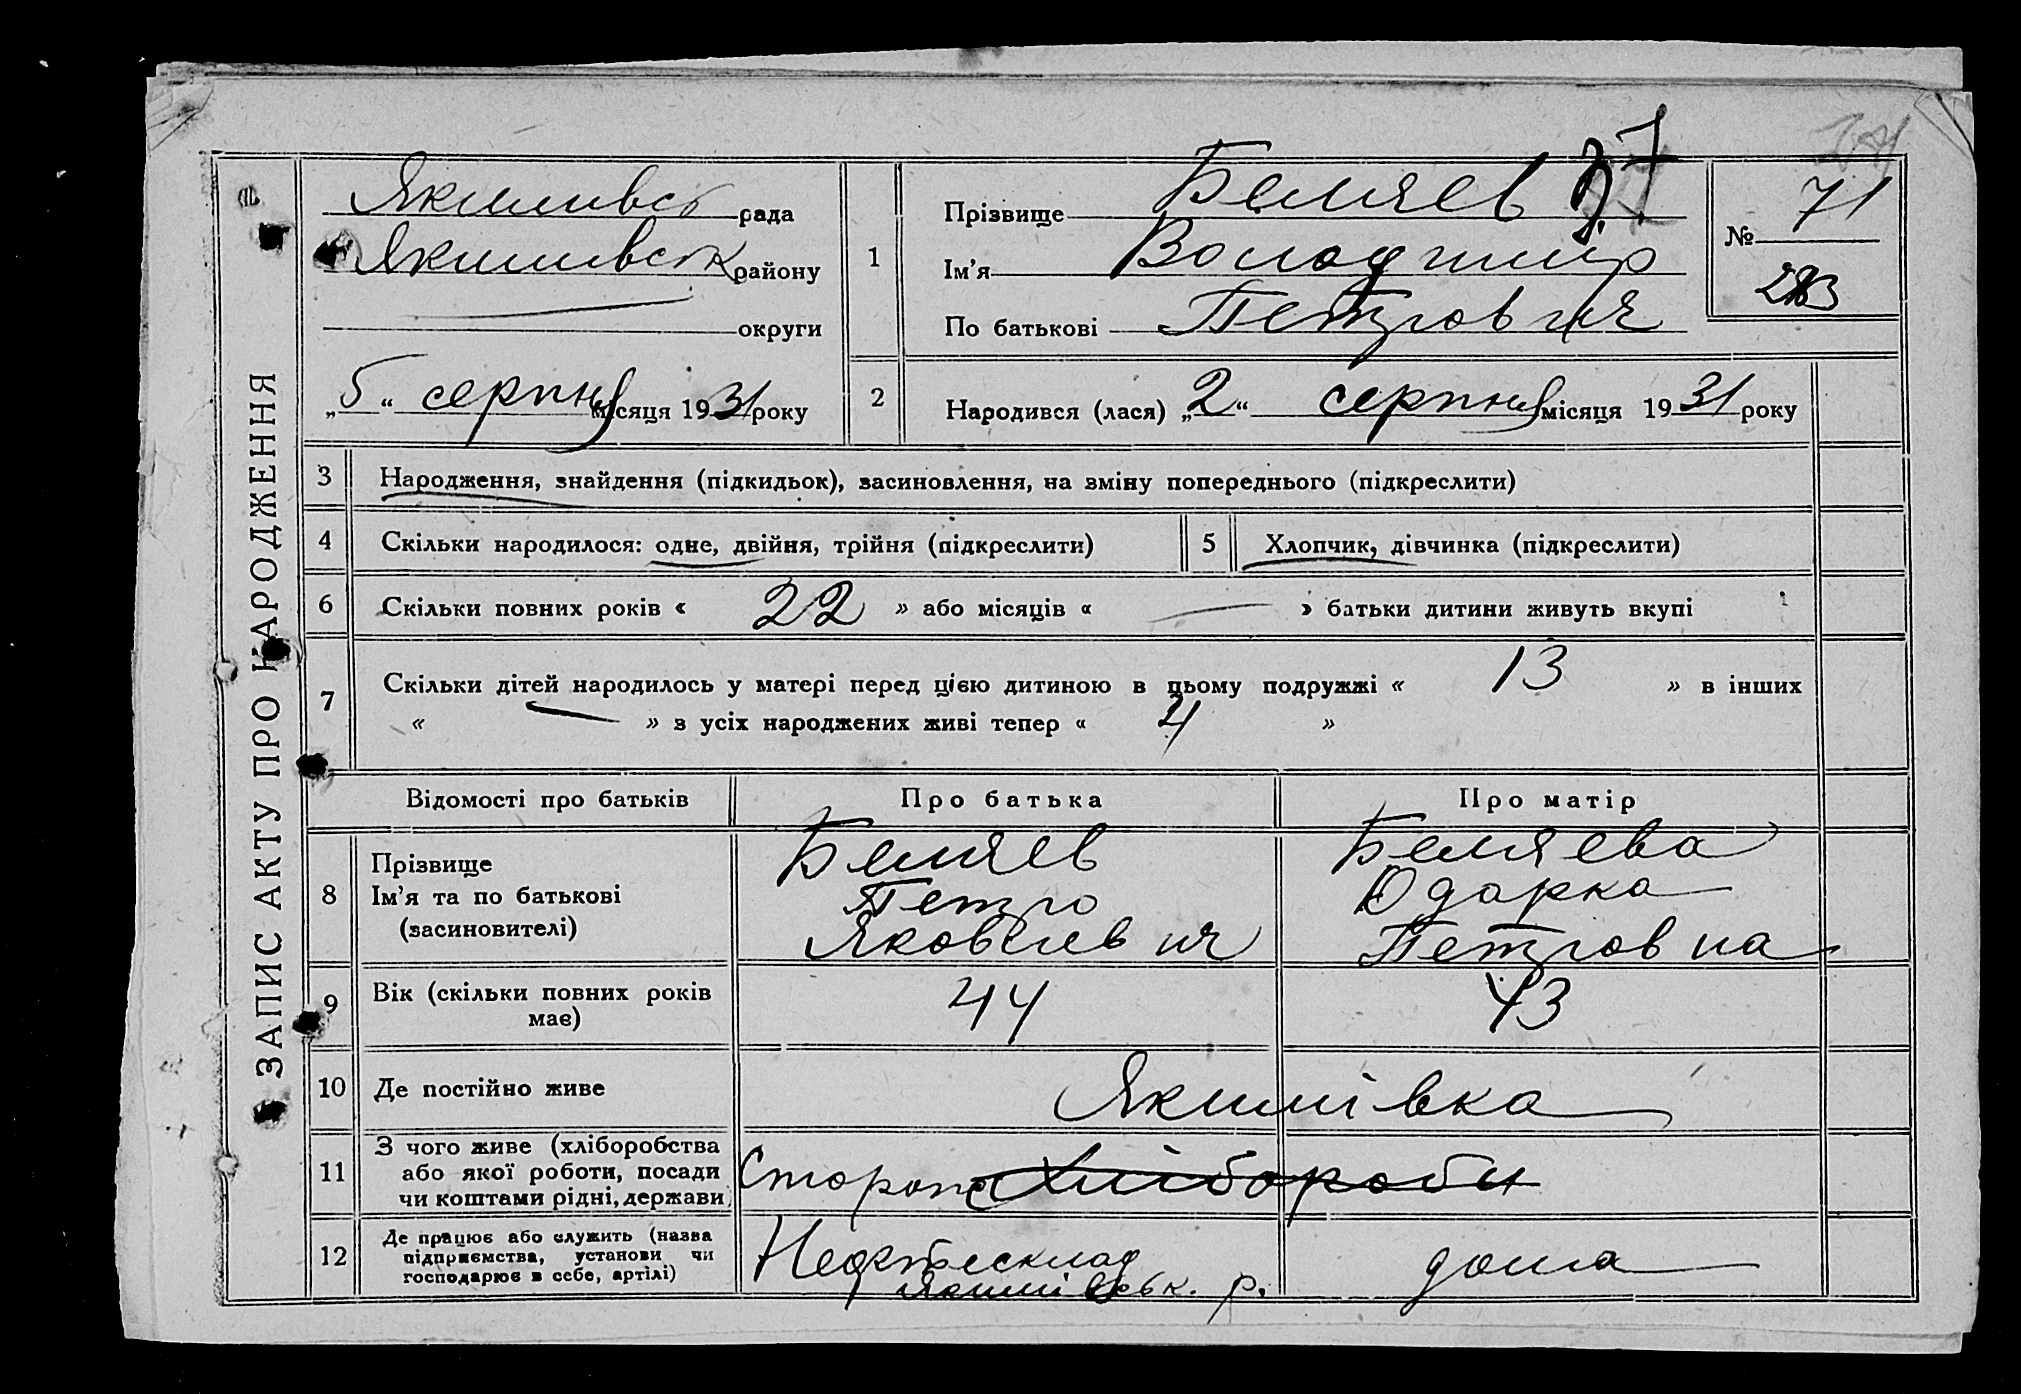 ЗАПИС АКТУ ПРО НАРОДЖЕННЯ
Якимивсь рада
Якимивськ району
округи
„5“ серпня місяця 1931 року
1
Прізвище Беляев
Ім'я Володимир
По батькові Петрович
№ 71
2
Народився (лася) „2“ серпня місяця 1931 року
3 Народження, знайдення (підкидьок), засиновлення, на зміну попереднього (підкреслити)
4 Скільки народилося: одне, двійня, трійня (підкреслити) 5 Хлопчик, дівчинка (підкреслити)
6 Скільки повних років « 22 » або місяців « — » батьки дитини живуть вкупі
7 Скільки дітей народилось у матері перед цією дитиною в цьому подружжі « 13 » в інших
« — » з усіх народжених живі тепер « 4 »
Відомості про батьків Про батька Про матір
8 Прізвище
Ім'я та по батькові
(засиновителі)
Беляев
Петро
Яковлевич
Беляева
Одарка
Петровна
9 Вік (скільки повних років
має)
44 43
10 Де постійно живе Якимівка
11 З чого живе (хліборобства
або якої роботи, посади
чи коштами рідні, держави)
Сторож Хлібороби
12 Де працює або служить (назва
підприємства, установи чи
господарює в себе, артілі)
Нефтесклад
Якимівськ. р.
дома